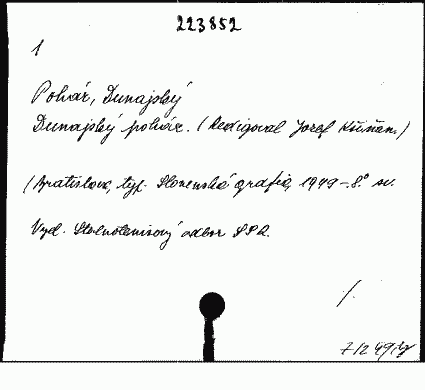 223852
1
Pohár, Dunajský
Dunajský pohár. (Redigoval Jozef
(Bratislava, typ. Slovenská grafia, 1949 – 8° sv.
Vyd. Stolnotenisový odbor
/.